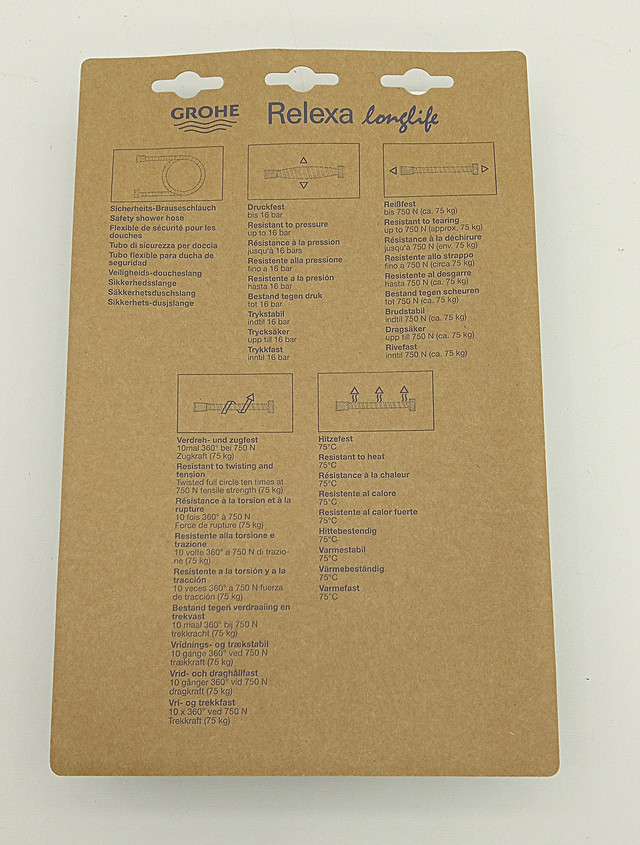 GROHE Relexa longlife
Sicherheits-Brauseschlauch
Safety shower hose
Flexible de sécurité pour les
douches
Tubo di sicurezza per doccia
Tubo flexible para ducha de
seguridad
Veiligheids-doucheslang
Sikkerhedsslange
Säkkerhetsduschslang
Sikkerhets-dusjslange
Druckfest
bis 16 bar
Resistant to pressure
up to 16 bar
Résistance à la pression
jusqu'à 16 bars
Resistente alla pressione
fino a 16 bar
Resistente a la presión
hasta 16 bar
Bestand tegen druk
tot 16 bar
Trykstabil
indtil 16 bar
Trycksäker
upp till 16 bar
Trykkfast
inntil 16 bar
Reißfest
bis 750 N (ca. 75 kg)
Resistant to tearing
up to 750 N (approx. 75 kg)
Résistance à la déchirure
jusqu'à 750 N (env. 75 kg)
Resistente allo strappo
fino a 750 N (circa 75 kg)
Resistente al desgarre
hasta 750 N (ca. 75 kg)
Bestand tegen scheuren
tot 750 N (ca. 75 kg)
Brudstabil
indtil 750 N (ca. 75 kg)
Dragsäker
upp till 750 N (ca. 75 kg)
Rivefast
inntil 750 N (ca. 75 kg)
Verdreh- und zugfest
10mal 360° bei 750 N
Zugkraft (75 kg)
Resistant to twisting and
tension
Twisted full circle ten times at
750 N tensile strength (75 kg)
Résistance à la torsion et à la
rupture
10 fois 360° à 750 N
Force de rupture (75 kg)
Resistente alla torsione e
trazione
10 volte 360° a 750 N di trazio-
ne (75 kg)
Resistente a la torsión y a la
tracción
10 veces 360° a 750 N fuerza
de tracción (75 kg)
Bestand tegen verdraaiing en
trekvast
10 maal 360° bij 750 N
trekkracht (75 kg)
Vridnings- og trækstabil
10 gange 360° ved 750 N
trækkraft (75 kg)
Vrid- och draghållfast
10 gånger 360° vid 750 N
dragkraft (75 kg)
Vri- og trekkfast
10 x 360° ved 750 N
Trekkraft (75 kg)
Hitzefest
75°C
Resistant to heat
75°C
Résistance à la chaleur
75°C
Resistente al calore
75°C
Resistente al calor fuerte
75°C
Hittebestendig
75°C
Varmestabil
75°C
Värmebeständig
75°C
Varmefast
75°C